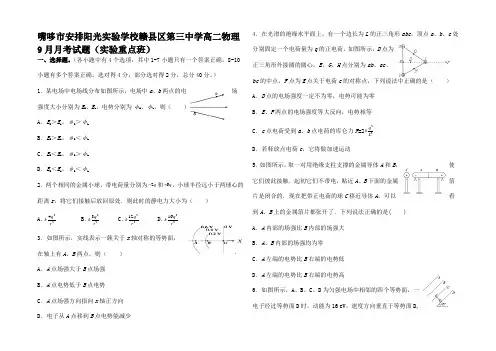 嘴哆市安排阳光实验学校赣县区第三中学高二物理
9月月考试题(实验重点班)
一、选择题。(各小题中有4个选项,其中1-7小题只有一个答案正确,8-10
小题有多个答案正确,选对得4分,部分选对得2分,总分40分。)
1.某电场中电场线分布如图所示,电场中a、b两点的电场
强度大小分别为
A.
B.
C.
D.
2.两个相同的金属小球,带电荷量分别为
距离r,将它们接触后放回原处.则此时的静电力大小为( )
A. B. C. D.
3.如图所示,实线表示一簇关于x轴对称的等势面,
在轴上有A、B两点,则( )
A.A点场强大于B点场强
B.A点电势低于B点电势
C.A点场强方向指向x轴正方向
D.电子从A点移到B点电势能减少
4.在光滑的绝缘水平面上,有一个边长为L的正三角形abc,顶点a、b、c处
分别固定一个电荷量为q的正电荷,如图所示,D点为
正三角形外接圆的圆心,E、G、H点分别为ab、ac、
bc的中点,F点为E点关于电荷c的对称点,下列说法中正确的是( )
A.D点的电场强度一定不为零,电势可能为零
B.E、F两点的电场强度等大反向,电势相等
C.c点电荷受到a、b点电荷的库仑力
D.若释放点电荷c,它将做加速运动
5.如图所示,取一对用绝缘支柱支撑的金属导体A和B,使
它们彼此接触,起初它们不带电,贴近A、B下面的金属箔
片是闭合的.现在把带正电荷的球C移近导体A,可以看
到A、B上的金属箔片都张开了.下列说法正确的是( )
A.A内部的场强比B内部的场强大
B.A、B内部的场强均为零
C.A左端的电势比B右端的电势低
D.A左端的电势比B右端的电势高
6.如图所示,A、B、C、D为匀强电场中相邻的四个等势面,一
电子经过等势面D时,动能为16 eV,速度方向垂直于等势面D,